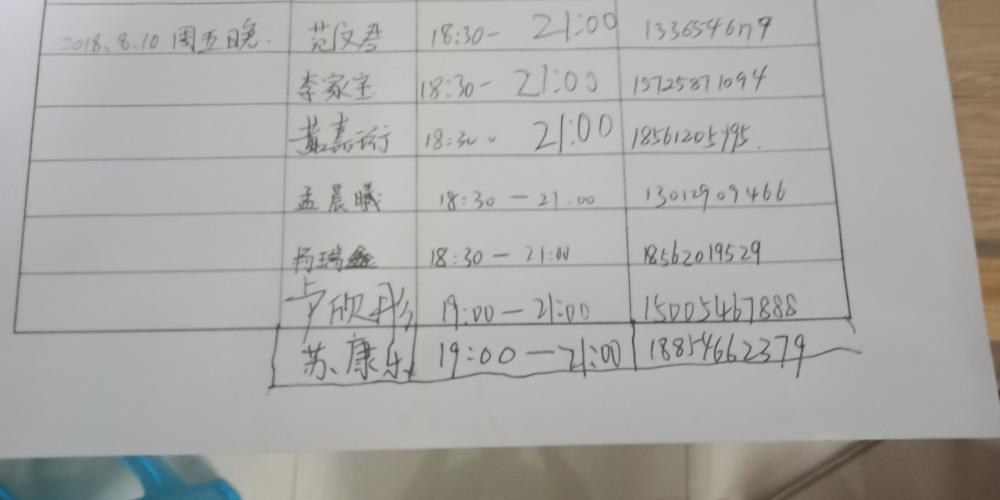 2018.8.10 周五晚. 范文君 18:30- 21:00
李家宝 18:30- 21:00 15725871094
18:30 21:00 18561205495.
孟晨曦 18:30 — 21:00 13012909466
杨瑞鑫 18:30 — 21:00 18562019529
卢欣彤 19:00 — 21:00 15005467888
苏康乐 19:00 — 21:00 18854662379